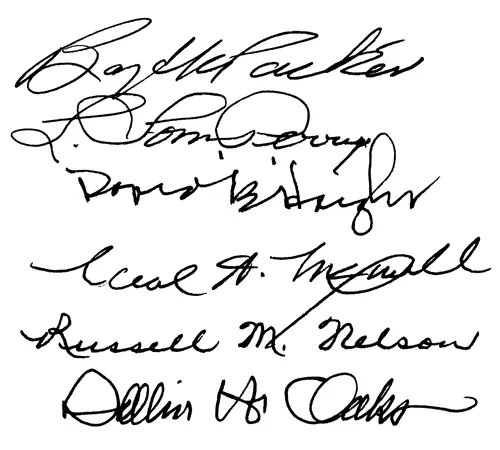 Boyd K Packer
L. Tom Perry
David B Haight
Neal A. Maxwell
Russell M. Nelson
Dallin H Oaks